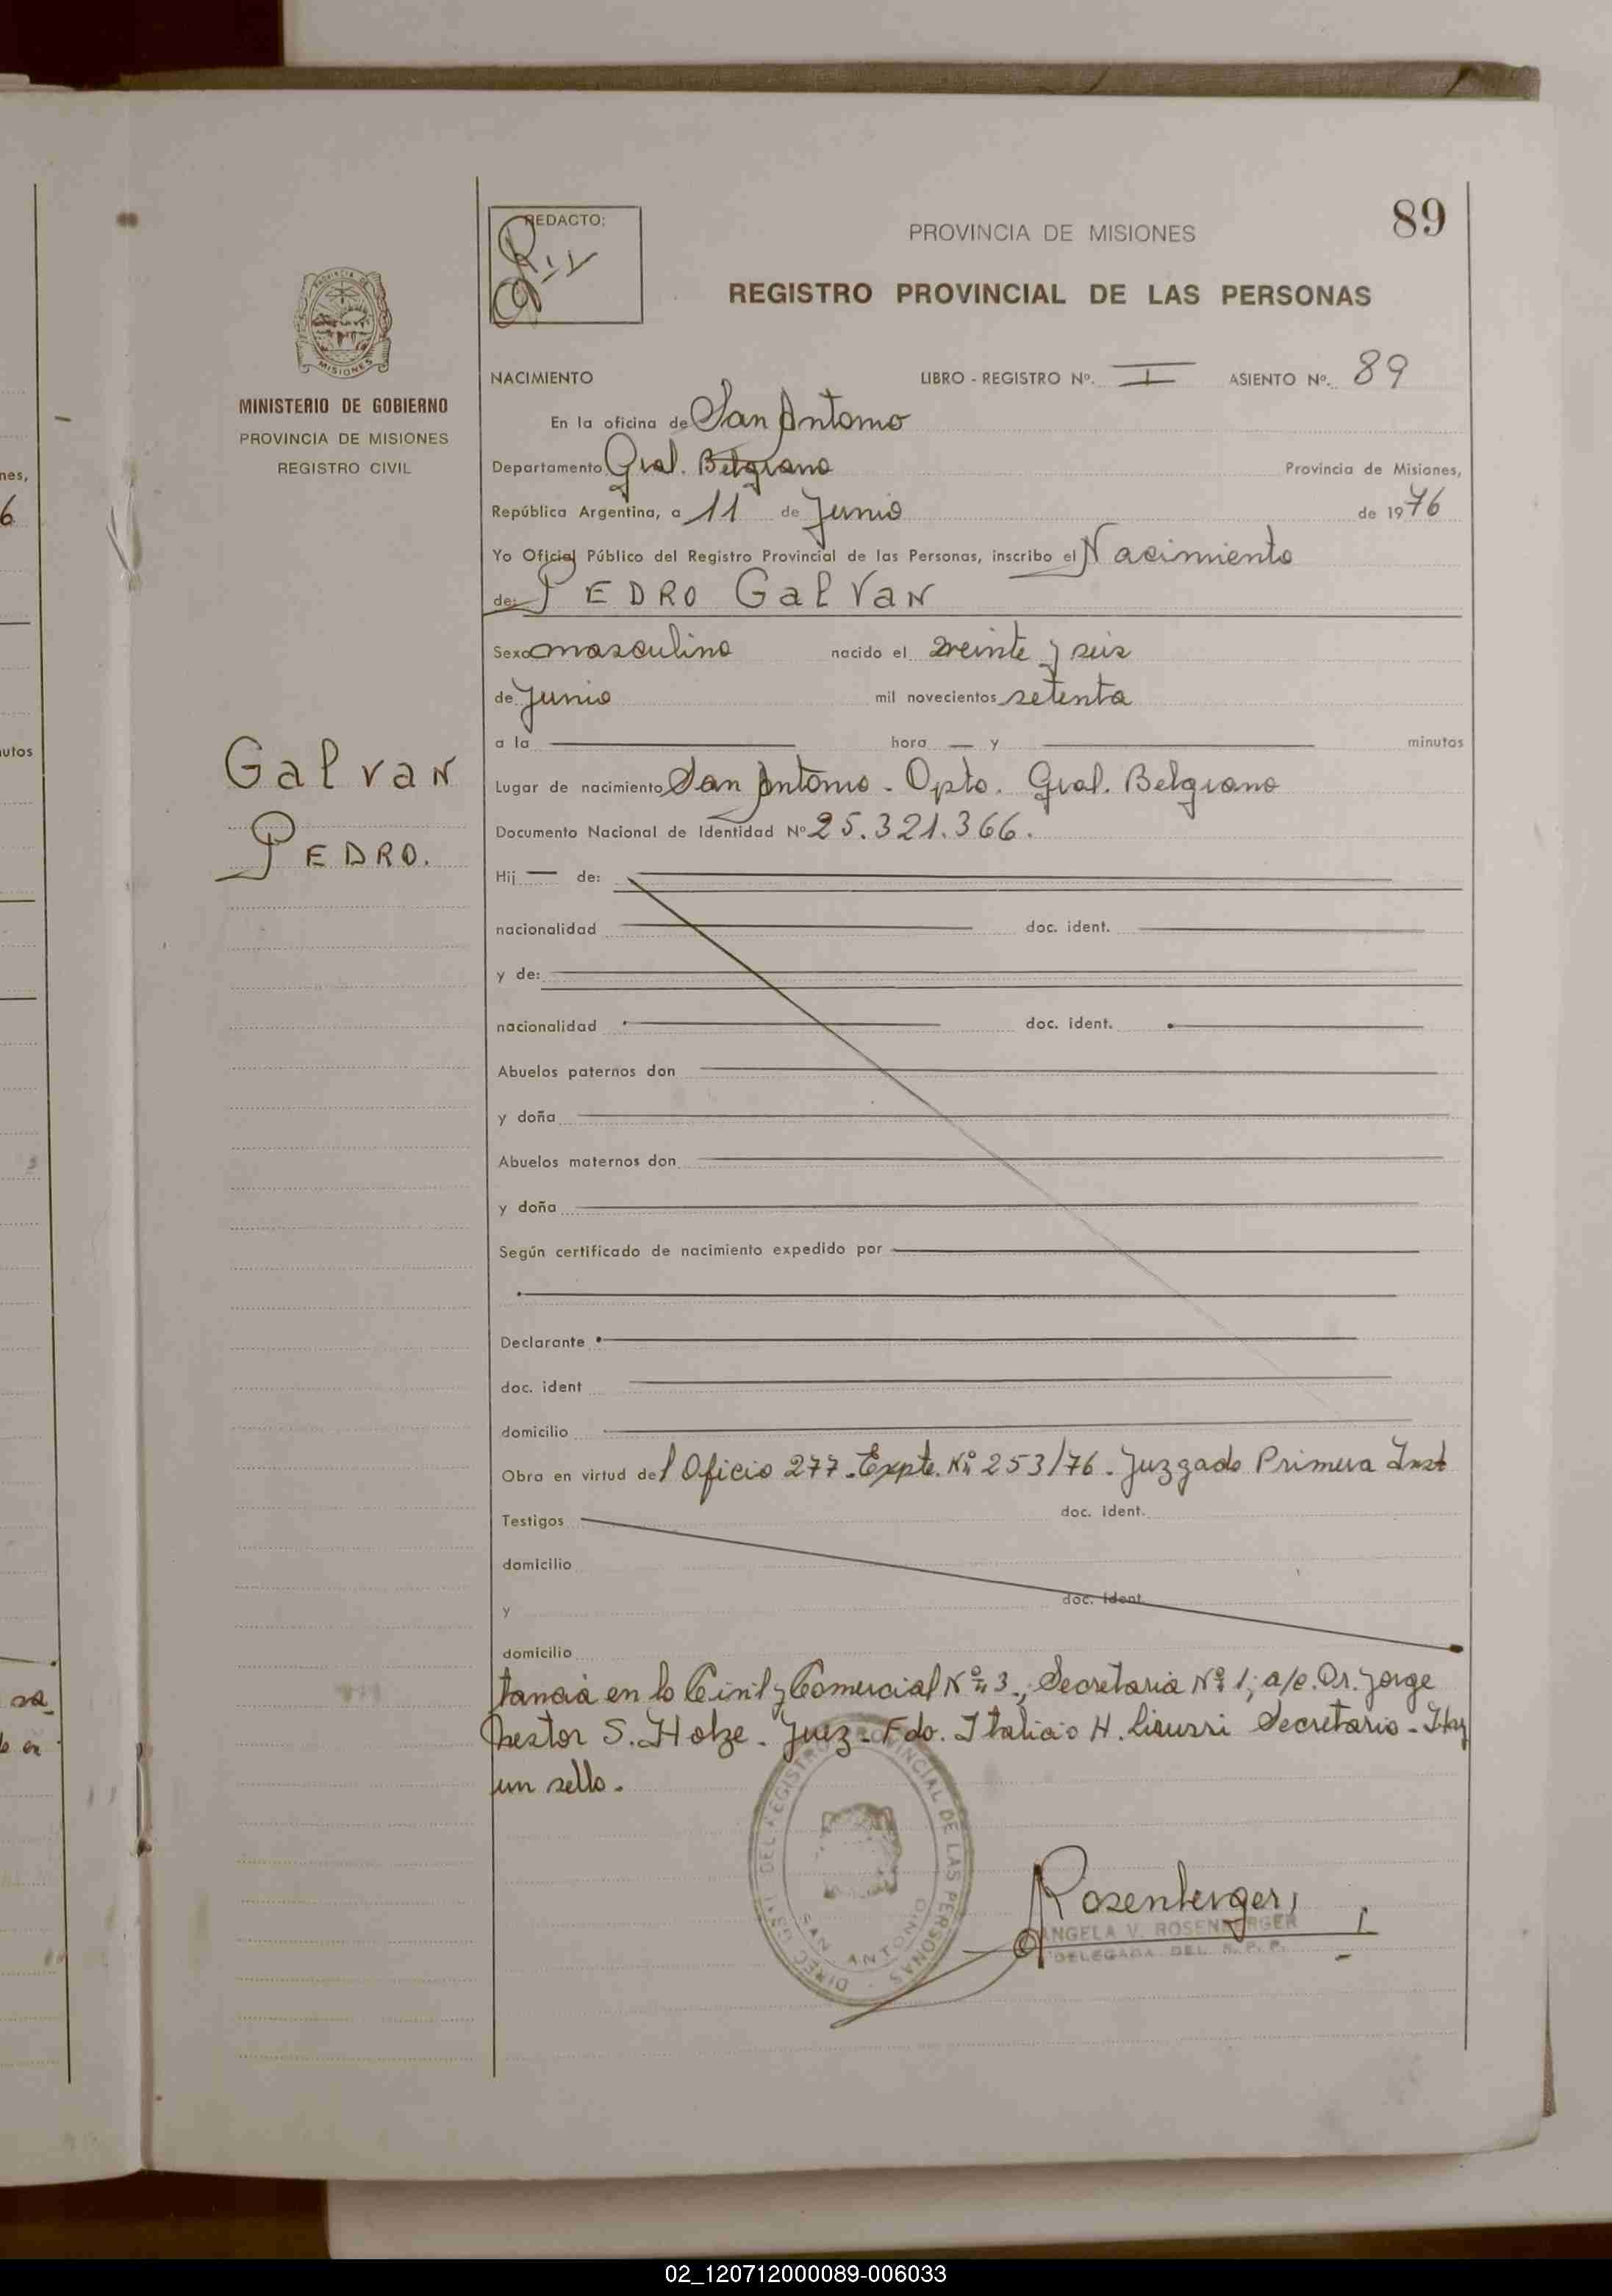 89
REDACTO:
PROVINCIA DE MISIONES
REGISTRO PROVINCIAL DE LAS PERSONAS
PROVINCIA DE
MISIONES
MINISTERIO DE GOBIERNO
PROVINCIA DE MISIONES
REGISTRO CIVIL
NACIMIENTO LIBRO - REGISTRO Nº. I ASIENTO Nº. 89
En la oficina de San Antonio
Departamento Gral. Belgrano Provincia de Misiones,
República Argentina, a 11 de Junio de 1976
Yo Oficial Público del Registro Provincial de las Personas, inscribo el Nacimiento
de: PEDRO GalVaN
Sexo masculino nacido el veinte y seis
de Junio mil novecientos setenta
a la hora y minutos
Galvan
PEDRO.
Lugar de nacimiento San Antonio - Dpto. Gral. Belgrano
Documento Nacional de Identidad Nº 25.321.366.
Hij de:
nacionalidad doc. ident.
y de:
nacionalidad doc. ident.
Abuelos paternos don
y doña
Abuelos maternos don
y doña
Según certificado de nacimiento expedido por
Declarante
doc. ident
domicilio
Obra en virtud del Oficio 277 - Expte. Nº 253/76 - Juzgado Primera Inst
Testigos doc. ident.
domicilio
y doc. ident.
domicilio
tancia en lo Civil y Comercial Nº 3., Secretaria Nº 1; a/c. Dr. Jorge
Nestor S. Holze - Juez - Fdo. Italicio H. Secretario - Hay
un sello.
DIREC. GRAL. DEL REGISTRO PROVINCIAL DE LAS PERSONAS
SAN ANTONIO
Rosenberger
ANGELA V. ROSENBERGER
DELEGADA DEL R. P. P.
nes,
6
utos
02_120712000089-006033